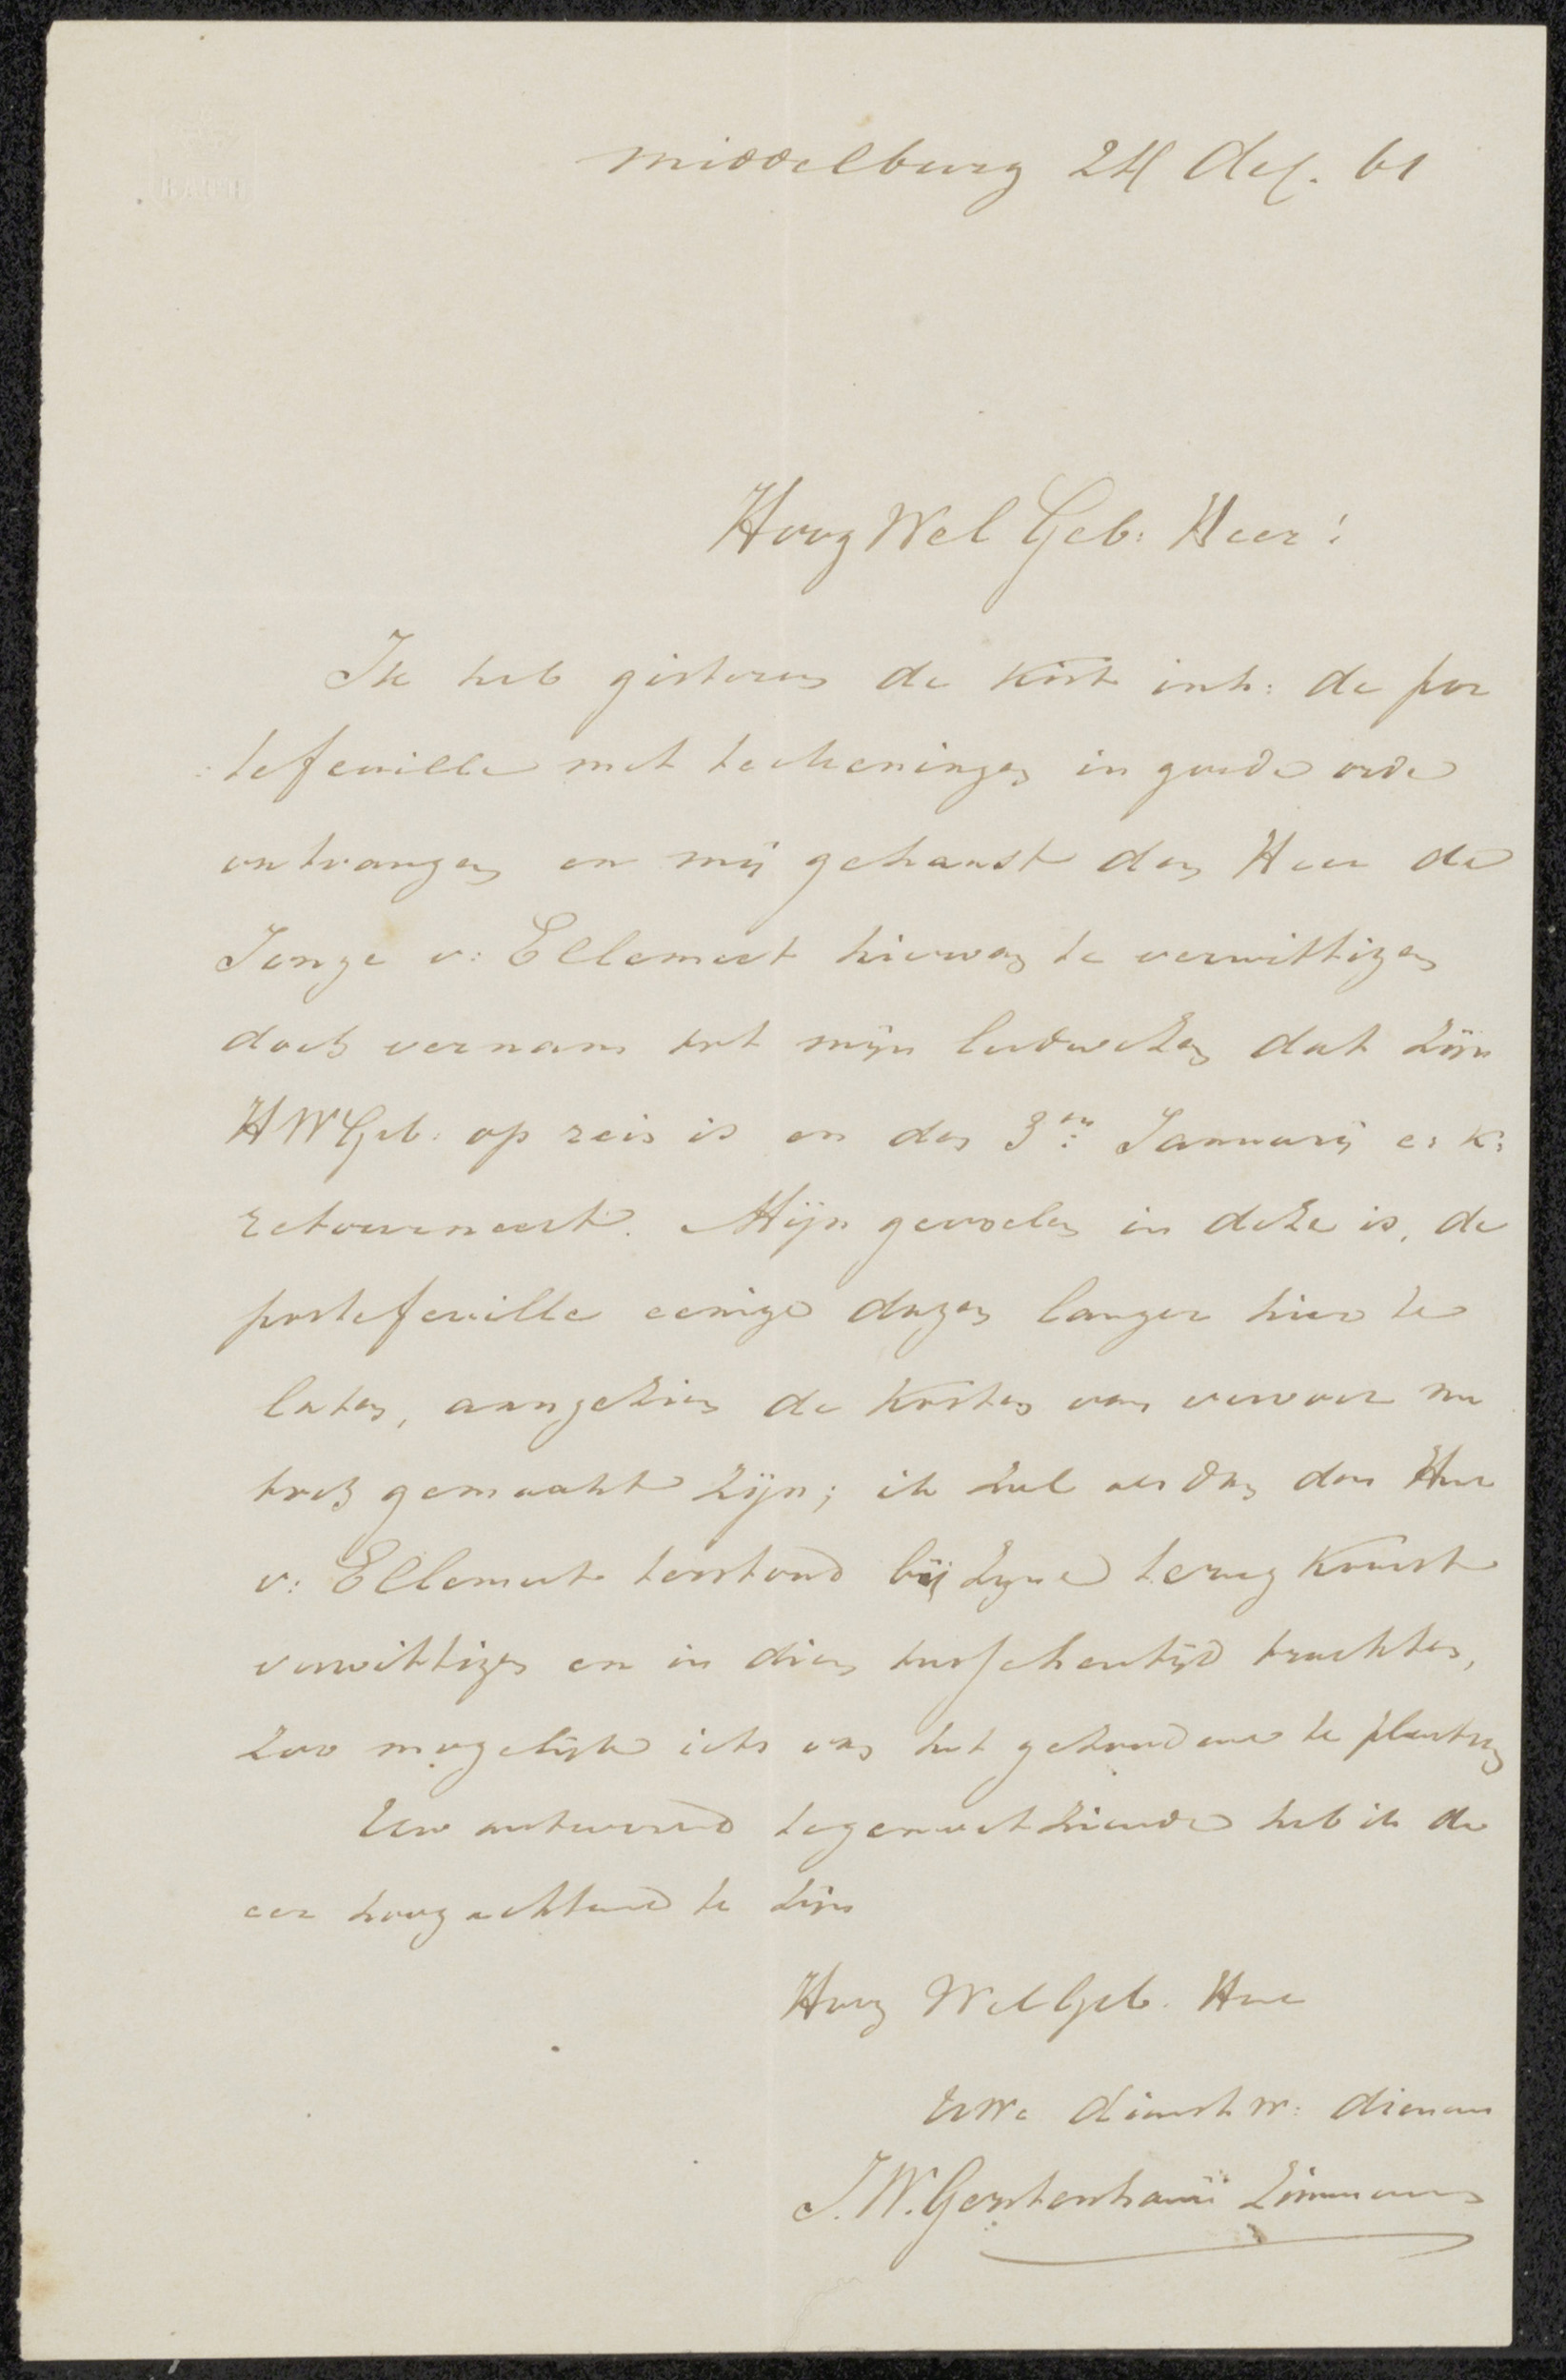 Middelburg 24 Dec. 61
Hoog Wel Geb: Heer!
Ik heb gisteren de kist inh: de por
tefeuille met teekeningen in goede orde
ontvangen en mij gehaast den Heer de
Jonge v: Ellemeet hiervan te verwittigen
doch vernam tot mijn leedwezen dat Zijn
HWGeb: op reis is en den 3en Januarij e: k:
retourneert. Mijn gevoelen in deze is, de
portefeuille eenige dagen langer hier te
laten, aangezien de kosten van vervoer nu
toch gemaakt zijn; ik zal als dan den Heer
v: Ellemeet terstond bij zijne terug komst
verwittigen en in dien tusschentijd trachten,
zoo mogelijk iets van het gezondene te plaatsen
Uw antwoord tegemoet ziende heb ik de
eer hoogachtend te zijn
Hoog WelGeb. Heer
UWe dienstw: dienaar
J. W. Gerstenhauer Zimmerman